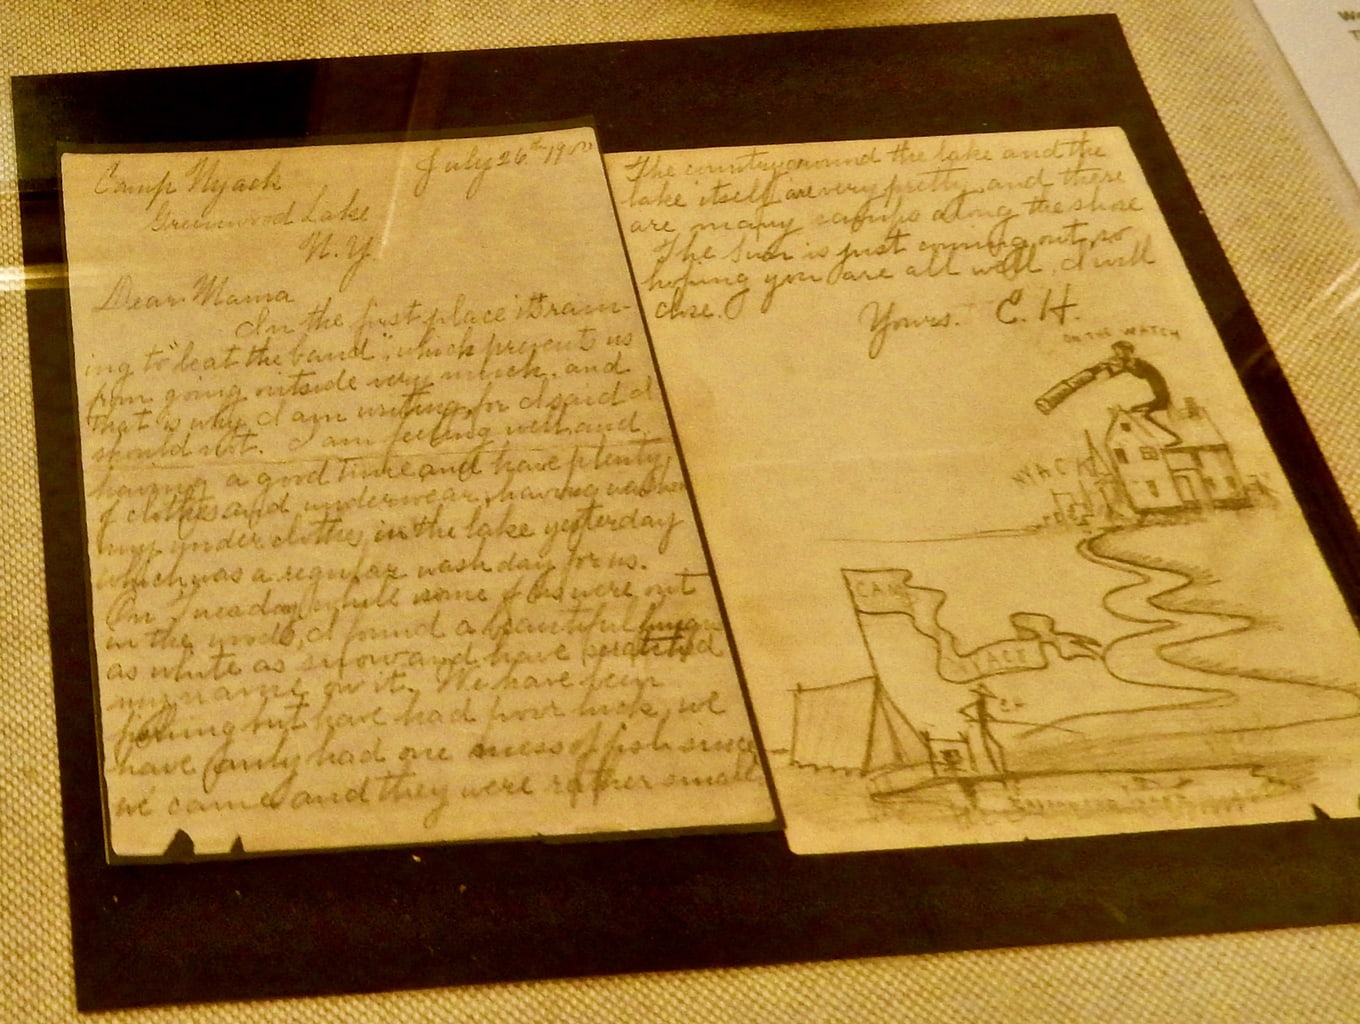 Camp Nyack July 26th 1900
Greenwood Lake
N.Y.
Dear Mama
In the first place it's rain-
ing to "beat the band", which prevents us
from going outside very much, and
that is why I am writing, for I said I
should not. I am feeling well and
having a good time and have plenty
of clothes and underwear, having washed
my under clothes in the lake yesterday
which was a regular wash day for us.
On Tuesday while some of us were out
in the woods, I found a beautiful
as white as snow and have scratched
my name on it. We have been
fishing but have had poor luck, we
have only had one mess of fish since
we came and they were rather small
The country around the lake and the
lake itself are very pretty and there
are many camps along the shore
The Sun is just coming out, so
hoping you are all well, I will
close.
Yours. E. H.
ON THE WATCH
NYACK
CAMP
NYACK
E.H.